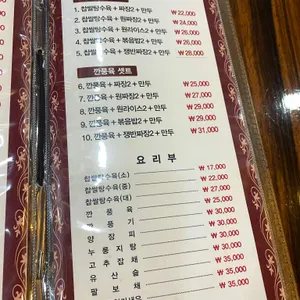 1. 찹쌀탕수육 + 짜장2 + 만두 ₩ 22,000
2. 찹쌀탕수육 + 원짜장2 + 만두 ₩ 24,000
3. 찹쌀탕수육 + 원라이스2 + 만두 ₩ 26,000
4. 찹쌀탕수육 + 볶음밥2 + 만두 ₩ 26,000
5. 찹쌀탕수육 + 쟁반짜장2 + 만두 ₩ 28,000
깐풍육 셋트
6. 깐풍육 + 짜장2 + 만두 ₩ 25,000
7. 깐풍육 + 원짜장2 + 만두 ₩ 27,000
8. 깐풍육 + 원라이스2 + 만두 ₩ 29,000
9. 깐풍육 + 볶음밥2 + 만두 ₩ 29,000
10. 깐풍육 + 쟁반짜장2 + 만두 ₩ 31,000
요 리 부
찹쌀탕수육(소) ₩ 17,000
찹쌀탕수육(중) ₩ 22,000
찹쌀탕수육(대) ₩ 27,000
깐 풍 육 ₩ 25,000
깐 풍 기 ₩ 30,000
양 장 피 ₩ 30,000
누 룽 지 탕 ₩ 30,000
고 추 잡 채 ₩ 30,000
유 산 슬 ₩ 35,000
팔 보 채 ₩ 35,000
₩ 35,000